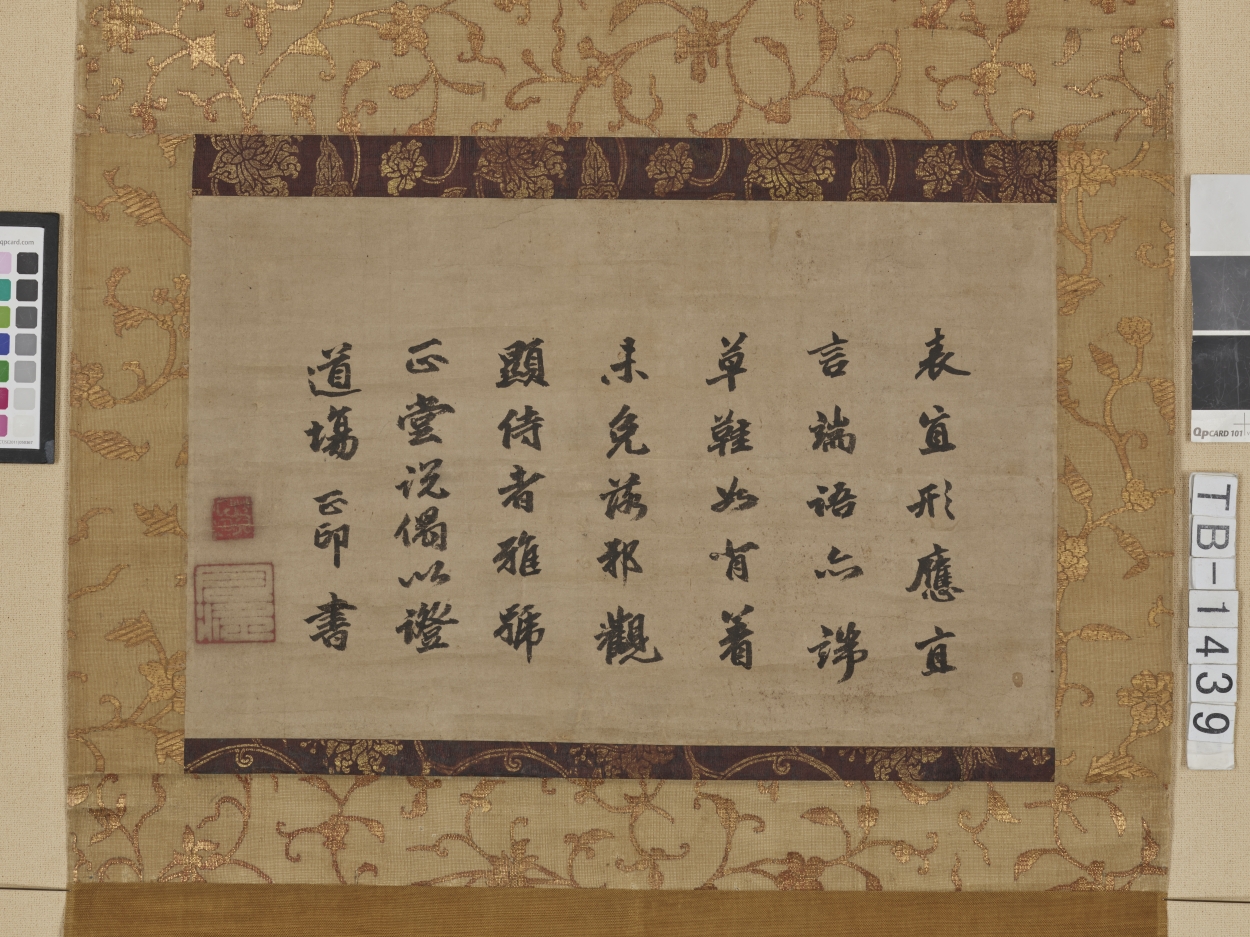 表直形應直
言端語亦諦
草鞋如肯着
未免落邪觀
顯侍者雅號
正堂説偈以證
道場 正印 書
qpcard.com
QPCARD 101
TB-1439